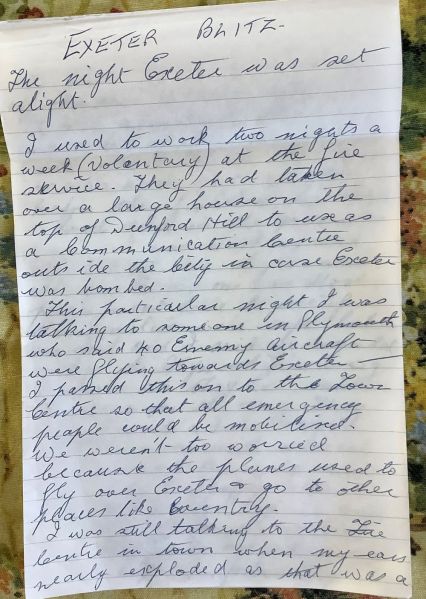 EXETER BLITZ-
The night Exeter was set
alight.
I used to work two nights a
week (Volentary) at the fire
service. They had taken
over a large house on the
top of Dunford Hill to use as
a Communication Centre
outside the City in case Exeter
was bombed.
This particular night I was
talking to someone in Plymouth
who said 40 Enemy Aircraft
were flying towards Exeter
I passed this on to the Town
Centre so that all emergency
people could be mobilised.
We weren't too worried
because the planes used to
fly over Exeter & go to other
places like Coventry.
I was still talking to the Fire
Centre in town when my ears
nearly exploded as that was a